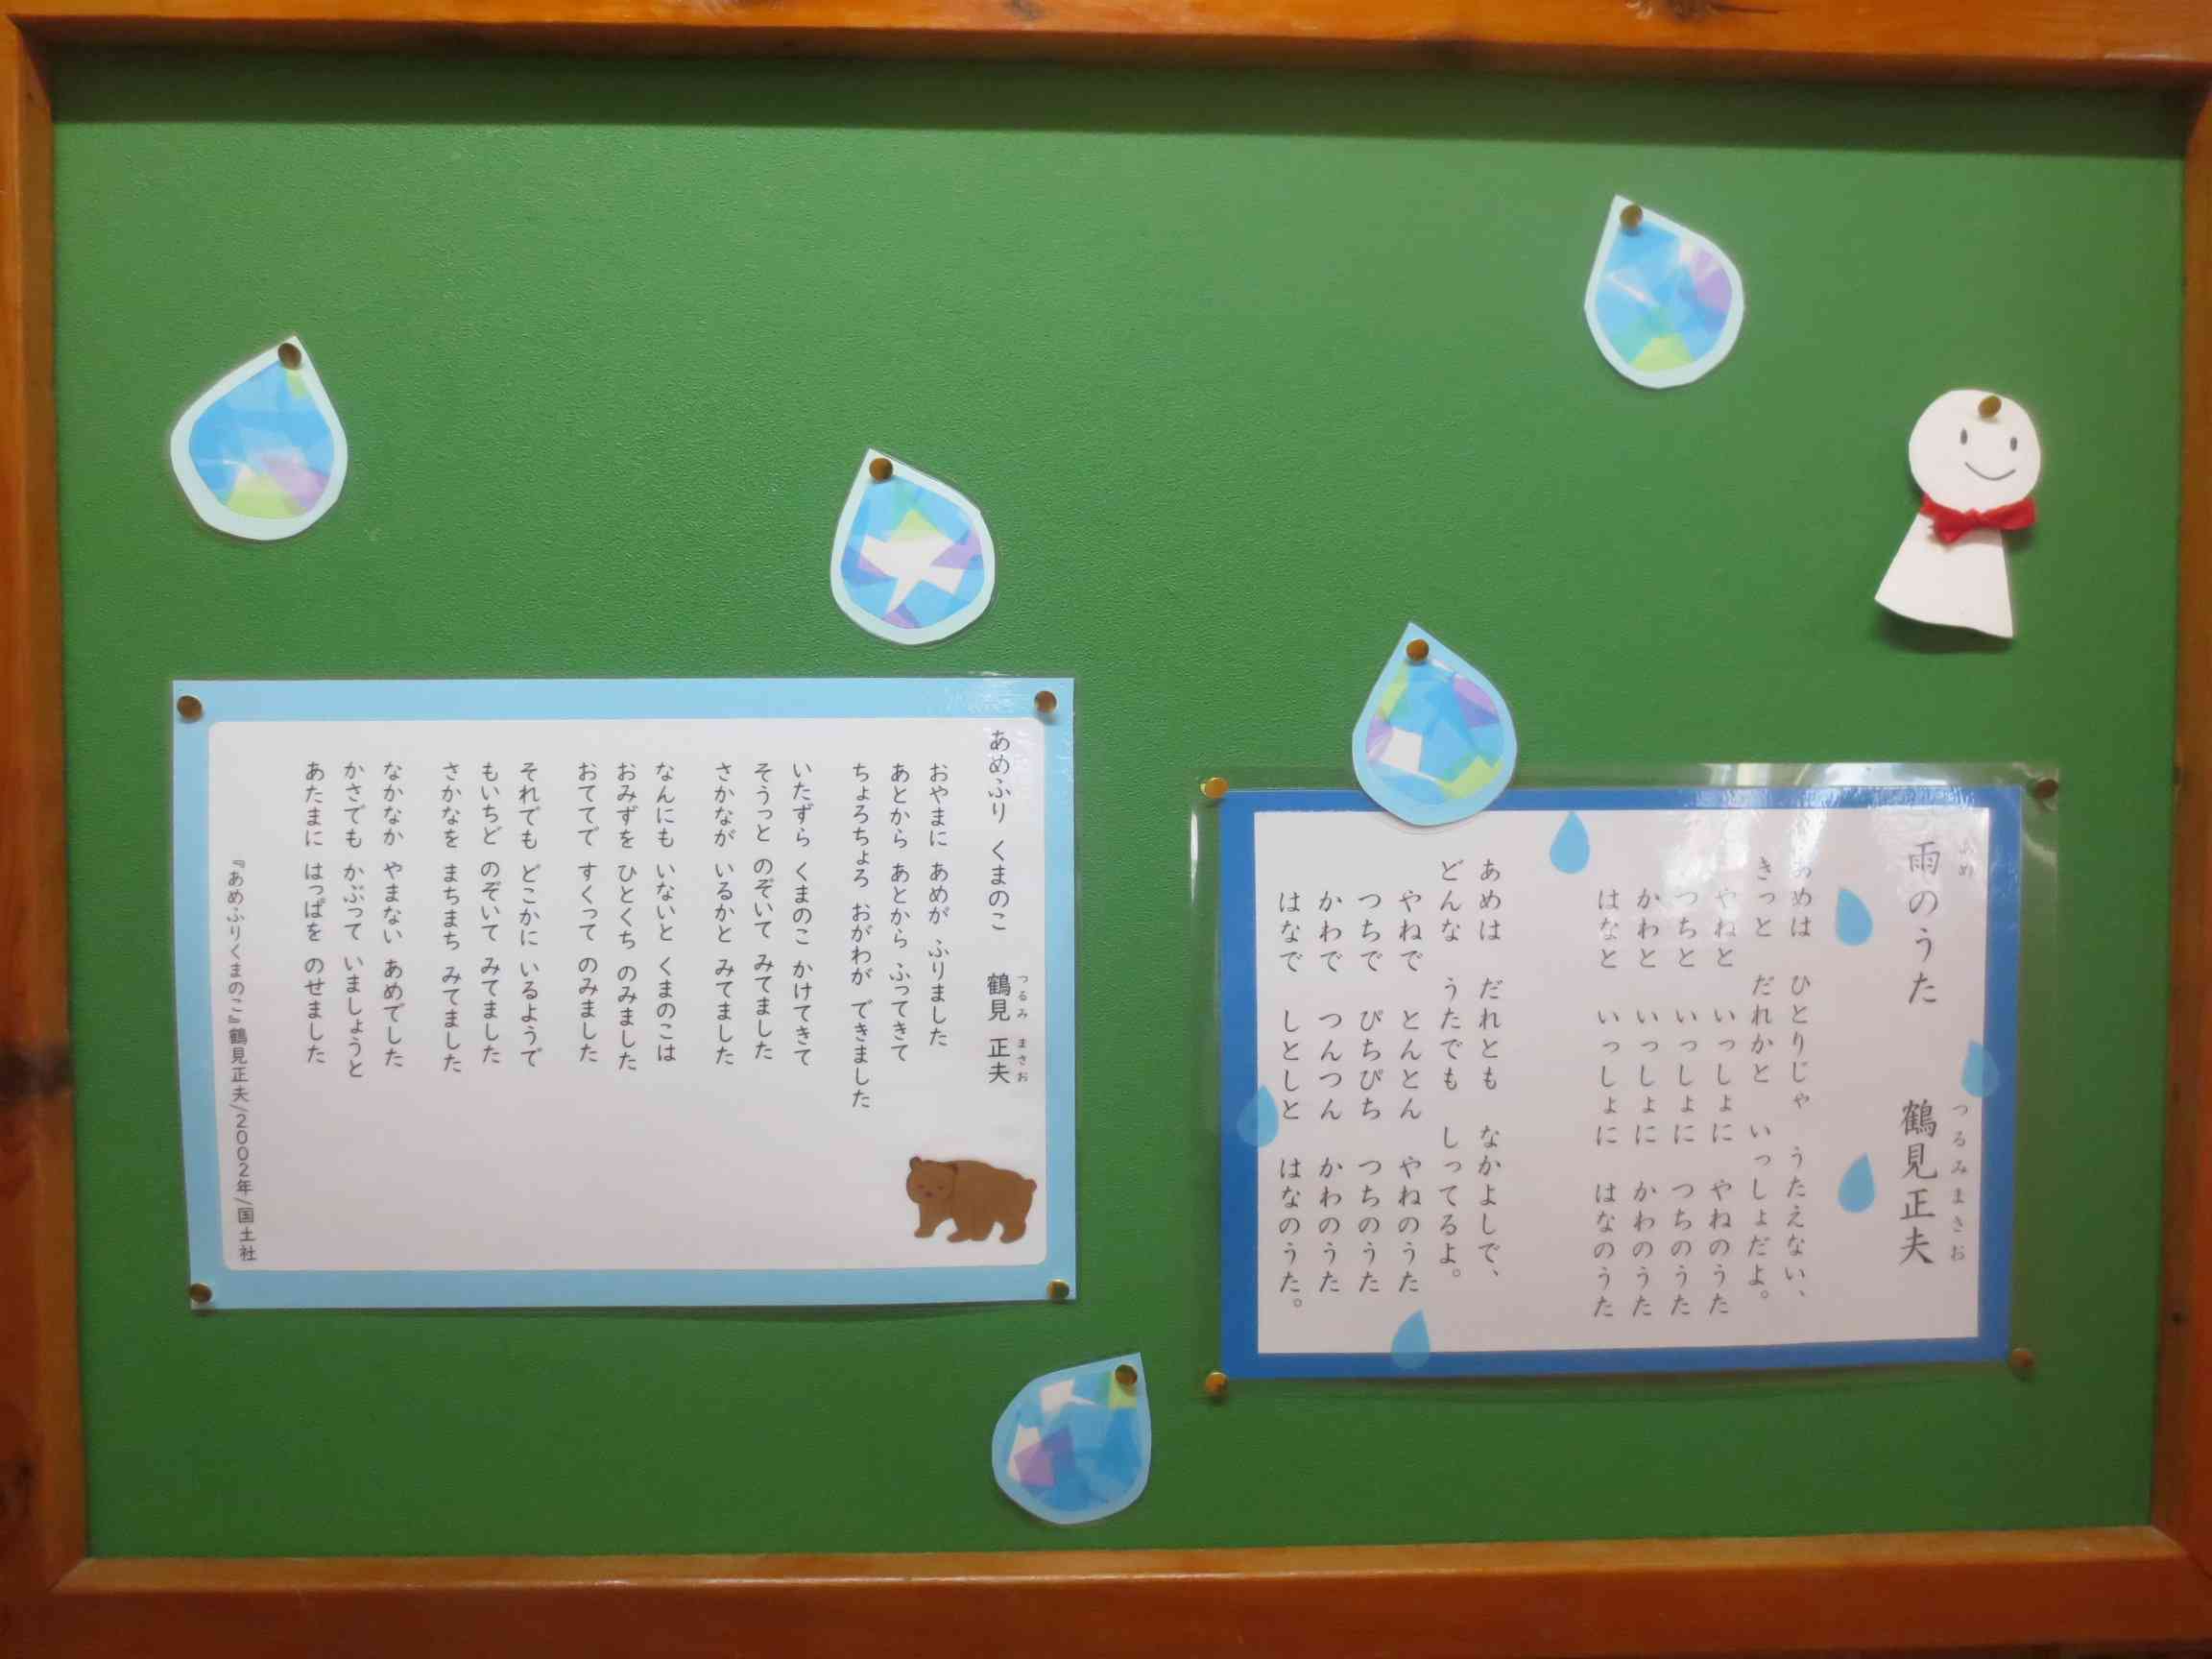 雨のうた　鶴見正夫
あめ
つるみまさお
あめは　ひとりじゃ　うたえない、
きっと　だれかと　いっしょだよ。
やねと　いっしょに　やねのうた
つちと　いっしょに　つちのうた
かわと　いっしょに　かわのうた
はなと　いっしょに　はなのうた
あめは　だれとも　なかよしで、
どんな　うたでも　しってるよ。
やねで　とんとん　やねのうた
つちで　ぴちぴち　つちのうた
かわで　つんつん　かわのうた
はなで　しとしと　はなのうた。
あめふり　くまのこ　鶴見　正夫
つるみ　まさお
おやまに　あめが　ふりました
あとから　あとから　ふってきて
ちょろちょろ　おがわが　できました
いたずら　くまのこ　かけてきて
そうっと　のぞいて　みてました
さかなが　いるかと　みてました
なんにも　いないと　くまのこは
おみずを　ひとくち　のみました
おててで　すくって　のみました
それでも　どこかに　いるようで
もいちど　のぞいて　みてました
さかなを　まちまち　みてました
なかなか　やまない　あめでした
かさでも　かぶって　いましょうと
あたまに　はっぱを　のせました
『あめふりくまのこ』鶴見正夫/2002年/国土社